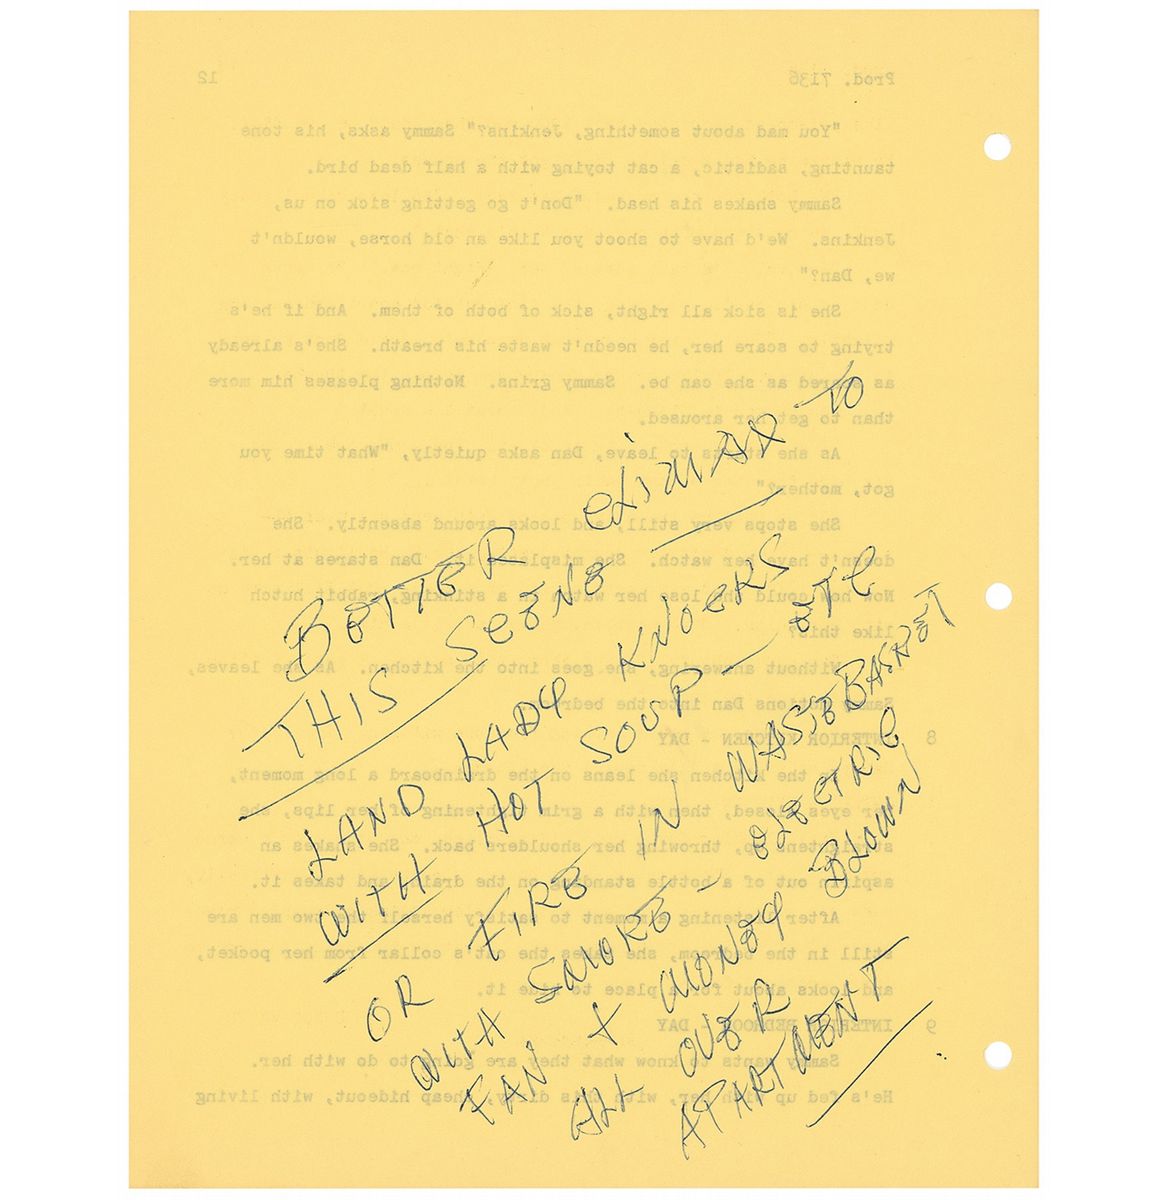 Prod. 7136 12
"You mad about something, Jenkins?" Sammy asks, his tone
taunting, sadistic, a cat toying with a half dead bird.
Sammy shakes his head. "Don't go getting sick on us,
Jenkins. We'd have to shoot you like an old horse, wouldn't
we, Dan?"
She is sick all right, sick of both of them. And if he's
trying to scare her, he needn't waste his breath. She's already
as scared as she can be. Sammy grins. Nothing pleases him more
than to get her aroused.
As she starts to leave, Dan asks quietly, "What time you
got, mother?"
She stops very still, and looks around absently. She
doesn't have her watch. She misplaced it. Dan stares at her.
Now how could she lose her watch in a stinking, rabbit hutch
like this?
Without answering, she goes into the kitchen. As she leaves,
Sammy motions Dan into the bedroom.
8 INTERIOR KITCHEN - DAY
In the kitchen she leans on the drainboard a long moment,
her eyes closed, then with a grim tightening of her lips, she
straightens up, throwing her shoulders back. She shakes an
aspirin out of a bottle standing on the drain and takes it.
After listening a moment to satisfy herself the two men are
still in the bedroom, she takes the cat's collar from her pocket,
and looks about for a place to hide it.
9 INTERIOR BEDROOM - DAY
Sammy wants to know what they are going to do with her.
He's fed up with her, with this dirty, cheap hideout, with living
BETTER CLIMAX TO
THIS SCENE
LAND LADY KNOCKS
WITH HOT SOUP - ETC
OR FIRE IN WASTEBASKET
WITH SMOKE - ELECTRIC
FAN + MONEY BLOWN
ALL OVER
APARTMENT